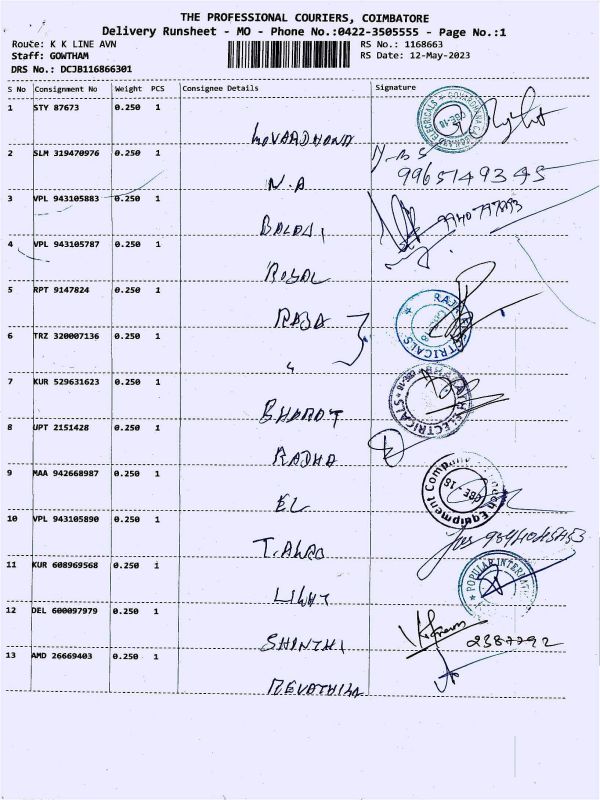 THE PROFESSIONAL COURIERS, COIMBATORE
Delivery Runsheet - MO - Phone No.:0422-3505555 - Page No.:1
Route: K K LINE AVN
RS No.: 1168663
Staff: GOWTHAM
RS Date: 12-May-2023
DRS No.: DCJB116866301
S No Consignment No Weight PCS Consignee Details Signature
1 STY 87673 0.250 1
GOVARDHANA
2 SLM 319470976 0.250 1
9965149345
N.A
3 VPL 943105883 0.250 1
BALAJI
4 VPL 943105787 0.250 1
ROYAL
5 RPT 9147824 0.250 1
RAJA
RAJA ELECTRICALS
6 TRZ 320007136 0.250 1
7 KUR 529631623 0.250 1
BHARATH ELECTRICALS
BHARAT
8 UPT 2151428 0.250 1
RADHA
9 MAA 942668987 0.250 1
Equipment Company
CBE - 18
EL
10 VPL 943105890 0.250 1
11 KUR 608969568 0.250 1
POPULAR
LIGHT
12 DEL 600097979 0.250 1
2387792
SHANTHI
13 AMD 26669403 0.250 1